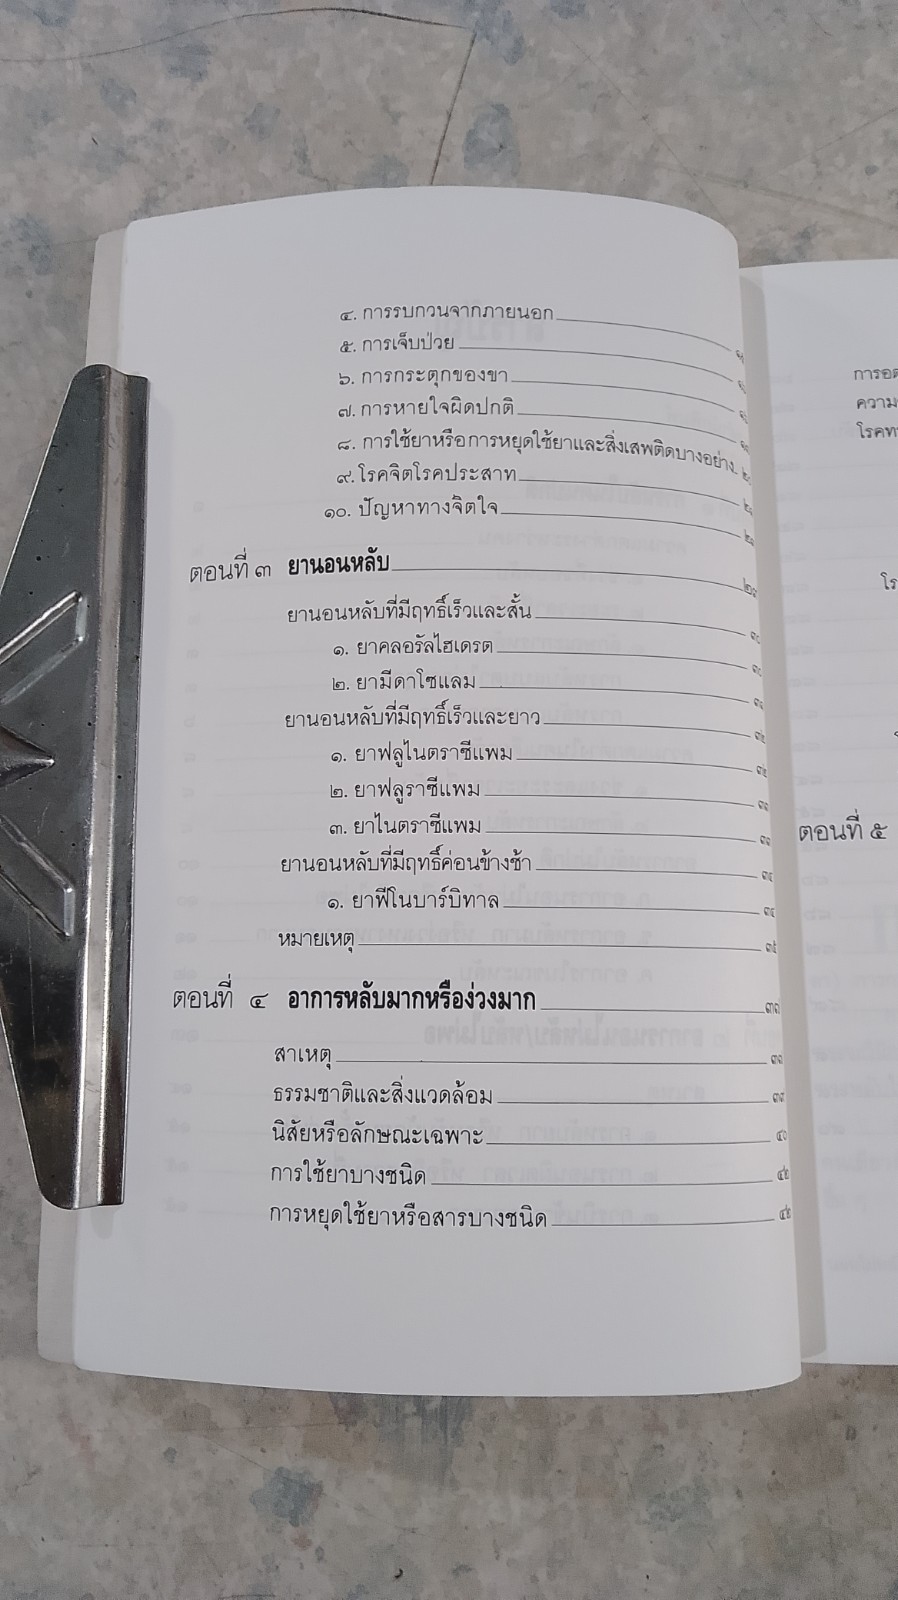 ๔. การรบกวนจากภายนอก
๕. การเจ็บป่วย
๖. การกระตุกของขา
๗. การหายใจผิดปกติ
๘. การใช้ยาหรือการหยุดใช้ยาและสิ่งเสพติดบางอย่าง
๙. โรคจิตโรคประสาท
๑๐. ปัญหาทางจิตใจ
ตอนที่ ๓ ยานอนหลับ
ยานอนหลับที่มีฤทธิ์เร็วและสั้น ๓๐
๑. ยาคลอรัลไฮเดรต ๓๐
๒. ยามีดาโซแลม
ยานอนหลับที่มีฤทธิ์เร็วและยาว ๓๒
๑. ยาฟลูไนตราซีแพม ๓๒
๒. ยาฟลูราซีแพม ๓๓
๓. ยาไนตราซีแพม ๓๓
ยานอนหลับที่มีฤทธิ์ค่อนข้างช้า ๓๔
๑. ยาฟีโนบาร์บิทาล ๓๔
หมายเหตุ ๓๕
ตอนที่ ๔ อาการหลับมากหรือง่วงมาก
สาเหตุ
ธรรมชาติและสิ่งแวดล้อม ๓๙
นิสัยหรือลักษณะเฉพาะ ๔๐
การใช้ยาบางชนิด ๔๒
การหยุดใช้ยาหรือสารบางชนิด
ตอนที่ ๕